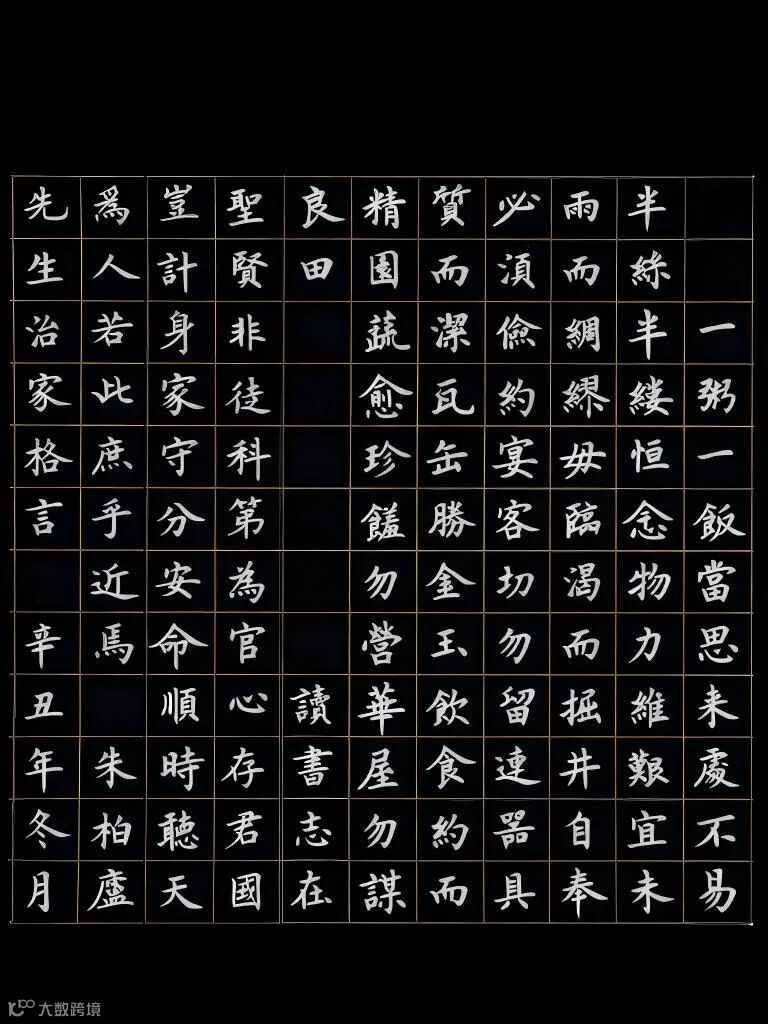 一粥一飯當思来處不易
半絲半縷恒念物力維艱宜未
雨而綢繆毋臨渴而掘井自奉
必湏儉約宴客切勿留連器具
質而潔瓦缶勝金玉飲食約而
精園蔬愈珍饈勿營華屋勿謀
良田 讀書志在
聖賢非徒科第為官心存君國
豈計身家守分安命順時聽天
爲人若此庶乎近焉 朱柏廬
先生治家格言 辛丑年冬月
大数跨境